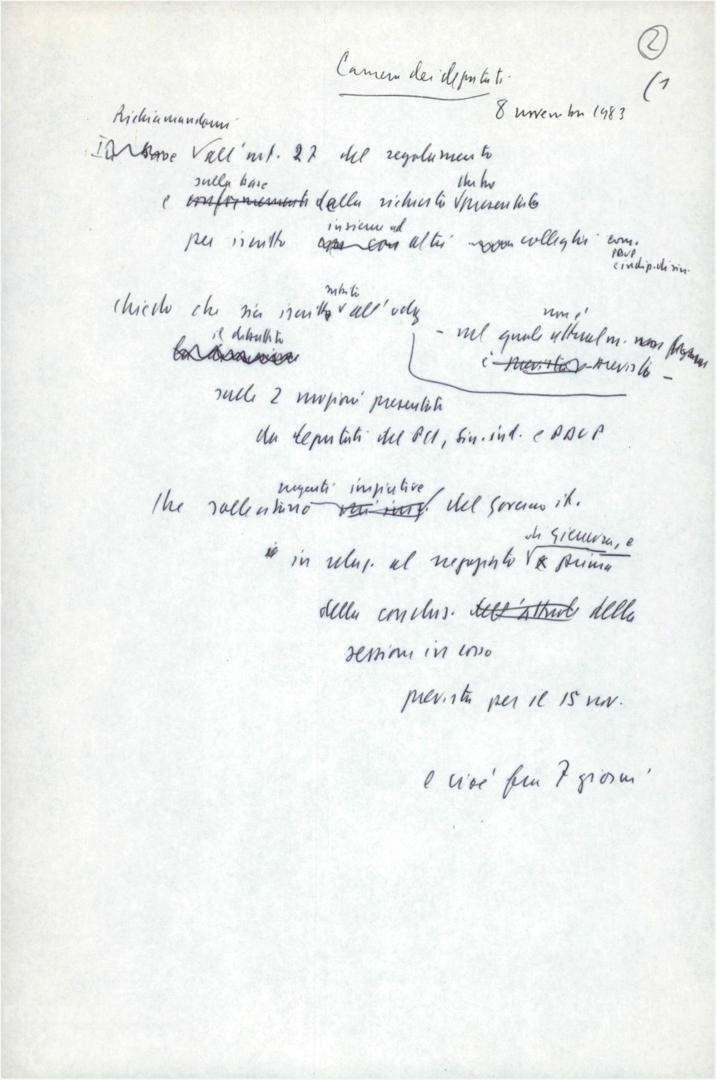 2
(1
Camera dei deputati
8 novembre 1983
Richiamandomi
all'art. 27 del regolamento
sulla base
e conformemente della richiesta presentata
per iscritto insieme ad altri colleghi com.
PDUP
e indip. di sin.
chiedo che sia iscritto subito all'odg
il dibattito
- nel quale attualm. non è
è prevista previsto -
sulle 2 mozioni presentate
da deputati del PCI, Sin. ind. e PDUP
urgenti iniziative
che sollecitano del Governo it.
di Ginevra, e
in relaz. al negoziato prima
della conclus. dell'attuale della
sessione in corso
prevista per il 15 nov.
e cioè fra 7 giorni